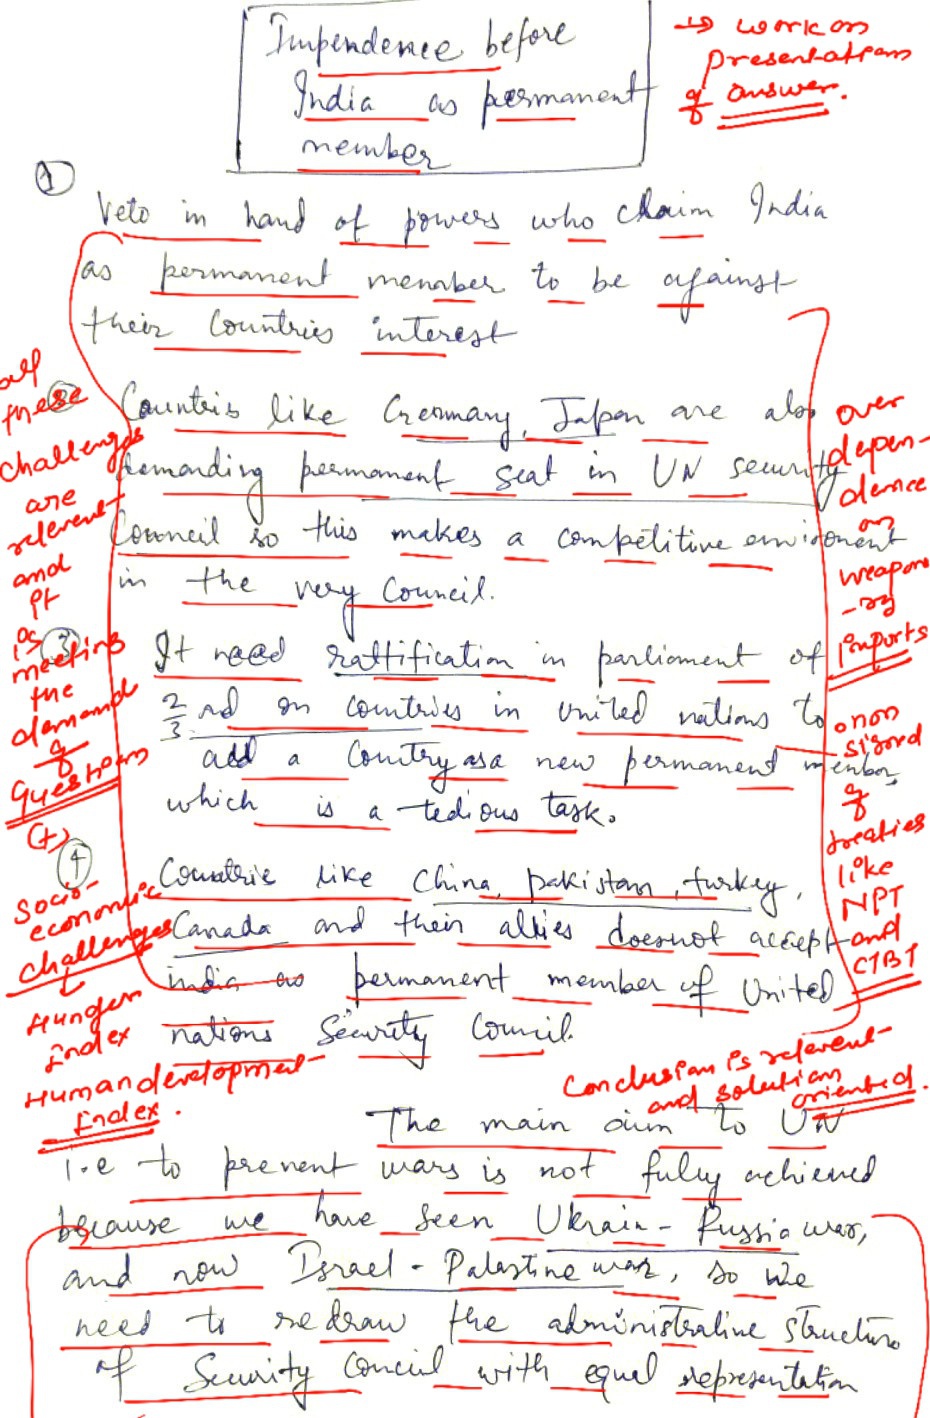 Impendence before
India as permanent
member
→ work on
presentation
of answer.
①
Veto in hand of powers who claim India
as permanent member to be against
their Countries interest
② Countris like Germany, Japan are also
demanding permanent seat in UN security
Council so this makes a competitive enviroment
in the very Council.
③ It need rattification in parliament of
2/3 rd on countries in United nations to
add a Country as a new permanent member,
which is a tedious task.
④ Countrie like China, pakistan, turkey,
Canada and their allies doesnot accept
india as permanent member of United
nations Security Council.
all
these
challenges
are
relevent
and
pt
is
meeting
the
demand
of
question
(+)
Socio-
economic
challenges
↓
Hunger
index
Human development
index.
over
depen-
dence
on
weapon
-ry
imports
non
signed
of
treaties
like
NPT
and
CTBT
Conclusion is relevent
and solution
oriented.
The main aim to UN
i.e to prevent wars is not fully achieved
because we have seen Ukrain - Russia war,
and now Israel - Palastine war, so we
need to redraw the administrative structure
of Security Concil with equal representation